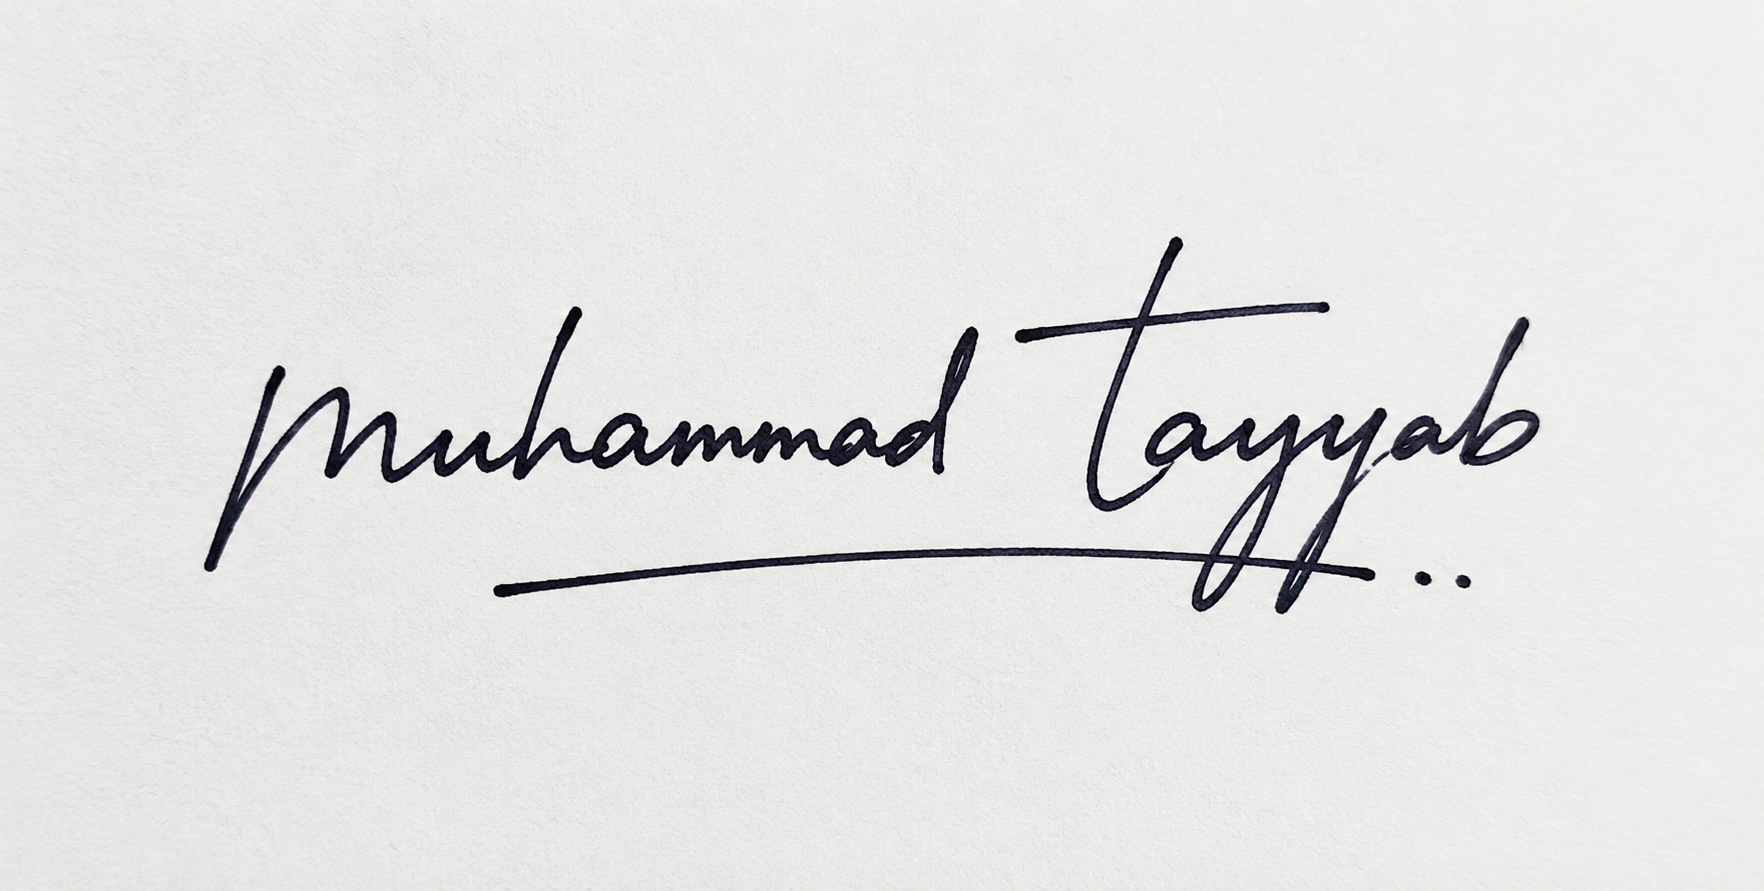 Muhammad Tayyab